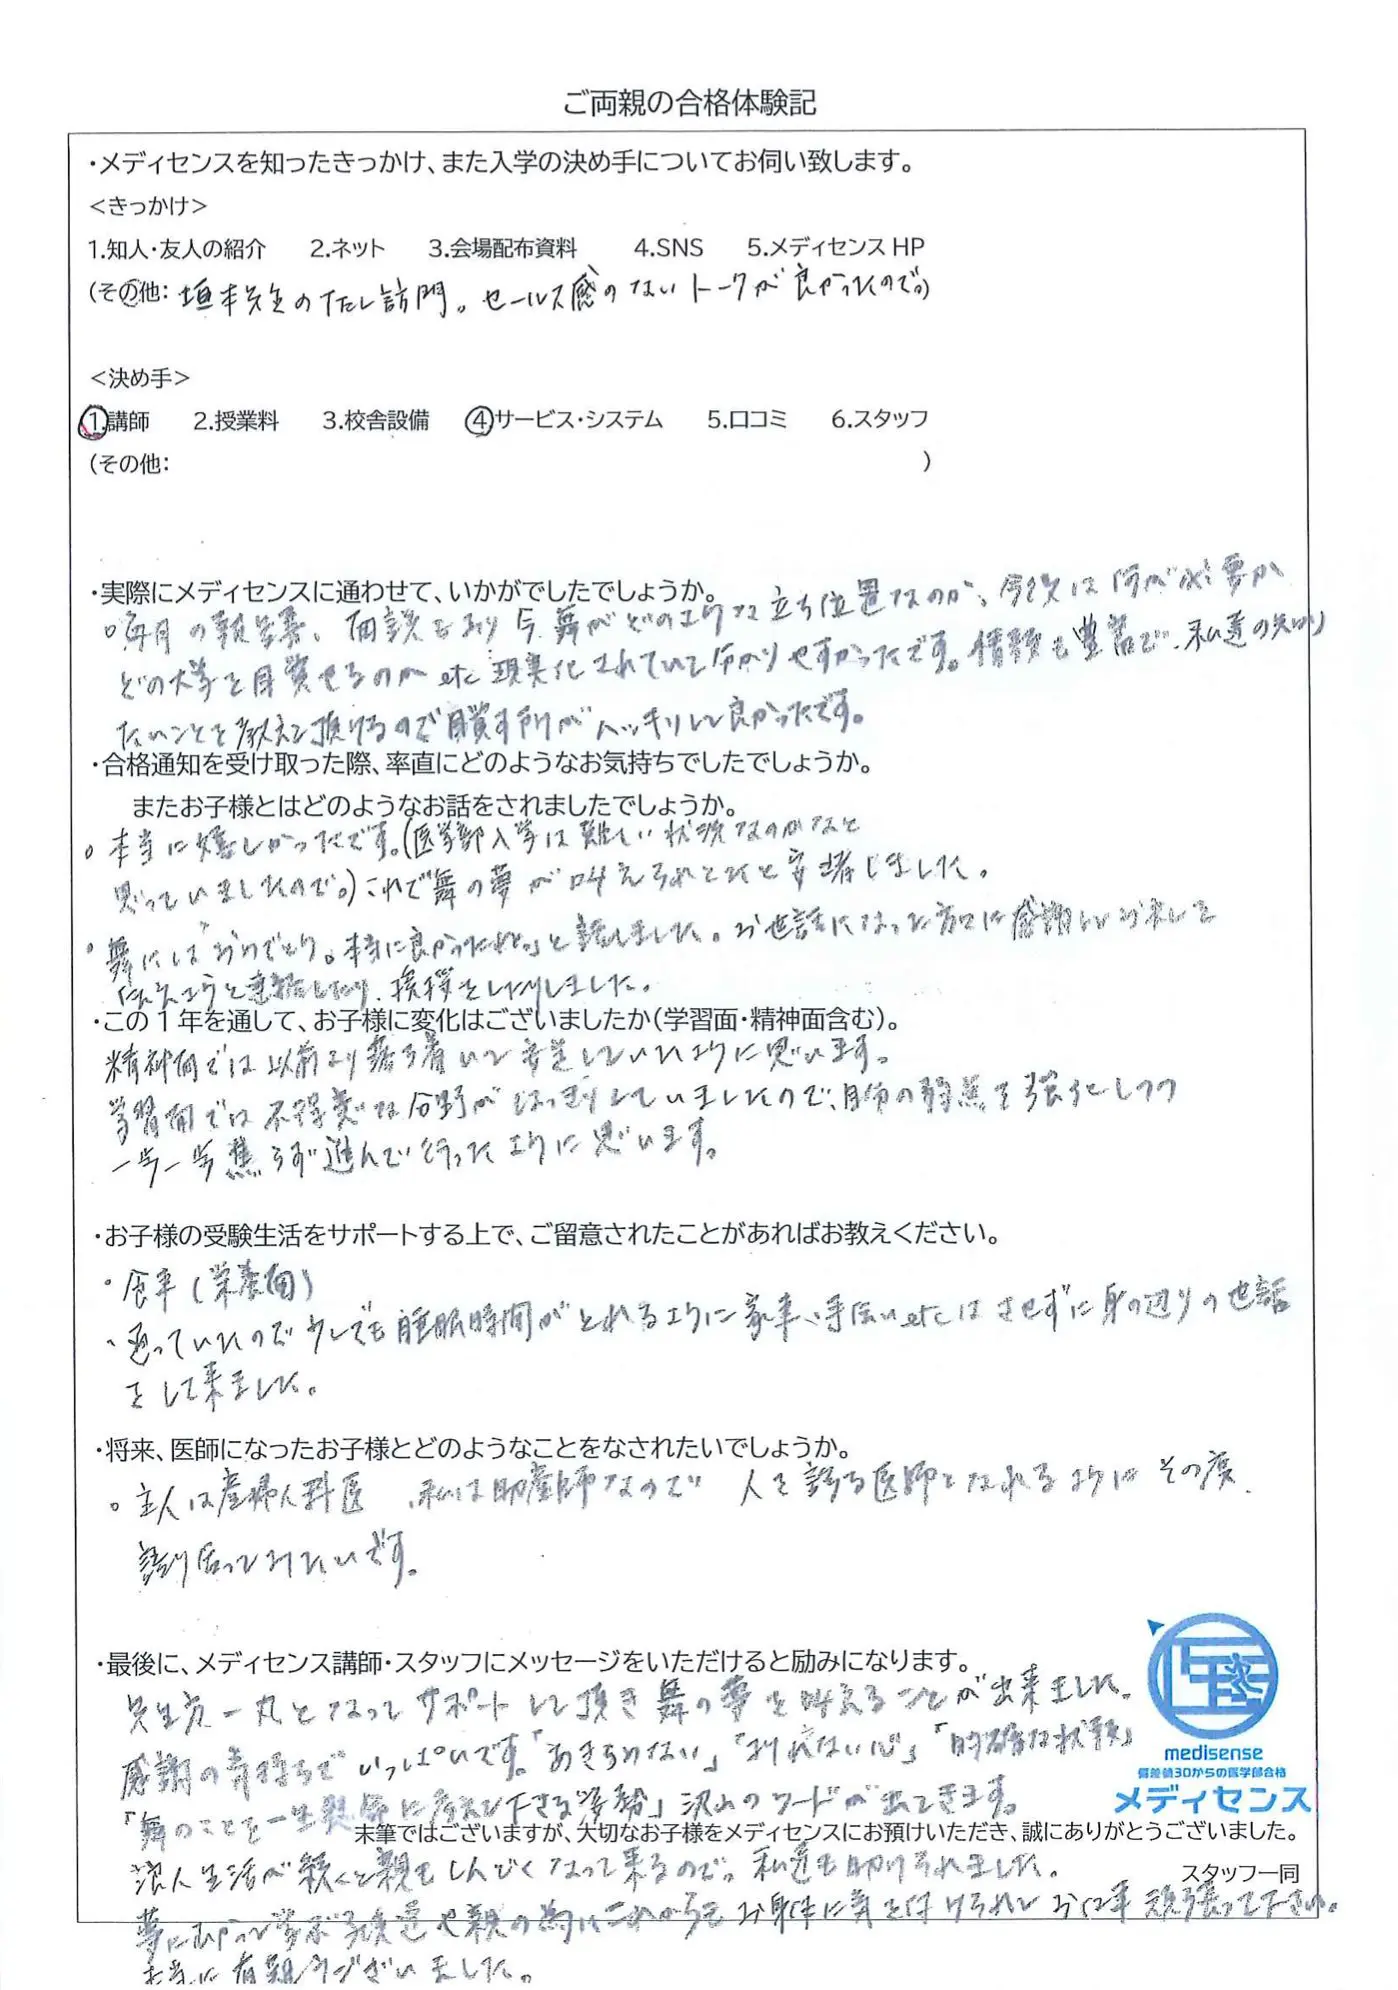 ご両親の合格体験記
・メディセンスを知ったきっかけ、また入学の決め手についてお伺い致します。
＜きっかけ＞
1.知人・友人の紹介 2.ネット 3.会場配布資料 4.SNS 5.メディセンス HP
(その他: 垣本先生の 訪問。セールス感のないトークが良かったので。)
＜決め手＞
1.講師 2.授業料 3.校舎設備 4.サービス・システム 5.口コミ 6.スタッフ
(その他: )
・実際にメディセンスに通わせて、いかがでしたでしょうか。
○毎月の報告書、面談により今舞がどのような立ち位置なのか、今後は何が必要か
どの大学を目指せるのか etc 現実化されていて分かりやすかったです。情報も豊富で、私達の知り
たいことを教えて頂けるので目指す所がハッキリして良かったです。
・合格通知を受け取った際、率直にどのようなお気持ちでしたでしょうか。
またお子様とはどのようなお話をされましたでしょうか。
○ 本当に嬉しかったです。(医学部入学は難しい状況なのかなと
思っていましたので。)これで舞の夢が叶えられたと安堵しました。
○ 舞には「おめでとう。本当に良かったね。」と話しました。お世話になった方々に感謝しお礼を
伝えようと連絡したり、挨拶をしたりしました。
・この 1 年を通して、お子様に変化はございましたか(学習面・精神面含む)。
精神面では以前より落ち着いて安定していたように思います。
学習面では不得意な分野がはっきりしていましたので、自分の弱点を強化しつつ
一歩一歩焦らず進んで行ったように思います。
・お子様の受験生活をサポートする上で、ご留意されたことがあればお教えください。
・食事(栄養面)
・通っていたので少しでも睡眠時間がとれるように家事、手伝い etc はさせずに身の辺りの世話
をして来ました。
・将来、医師になったお子様とどのようなことをなされたいでしょうか。
○ 主人は産婦人科医、私は助産師なので 人を診る医師となれるように その度
語り合ってみたいです。
・最後に、メディセンス講師・スタッフにメッセージをいただけると励みになります。
先生方一丸となってサポートして頂き舞の夢を叶えることが出来ました。
感謝の気持ちでいっぱいです。「あきらめない」「 ない心」「的確な状況」
「舞のことを一生懸命に考えて下さる姿勢」沢山のワードが出てきます。
末筆ではございますが、大切なお子様をメディセンスにお預けいただき、誠にありがとうございました。
浪人生活が続くと親もしんどくなって来るので。私達も助けられました。
スタッフ一同
夢にむかって学ぶ子供達や親の為にこれからもお身体に気を付けられてお仕事頑張って下さい。
本当に有難うございました。
medisense
偏差値30からの医学部合格
メディセンス